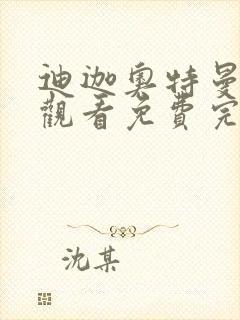 迪迦奥特曼
觀看免費完
沈某